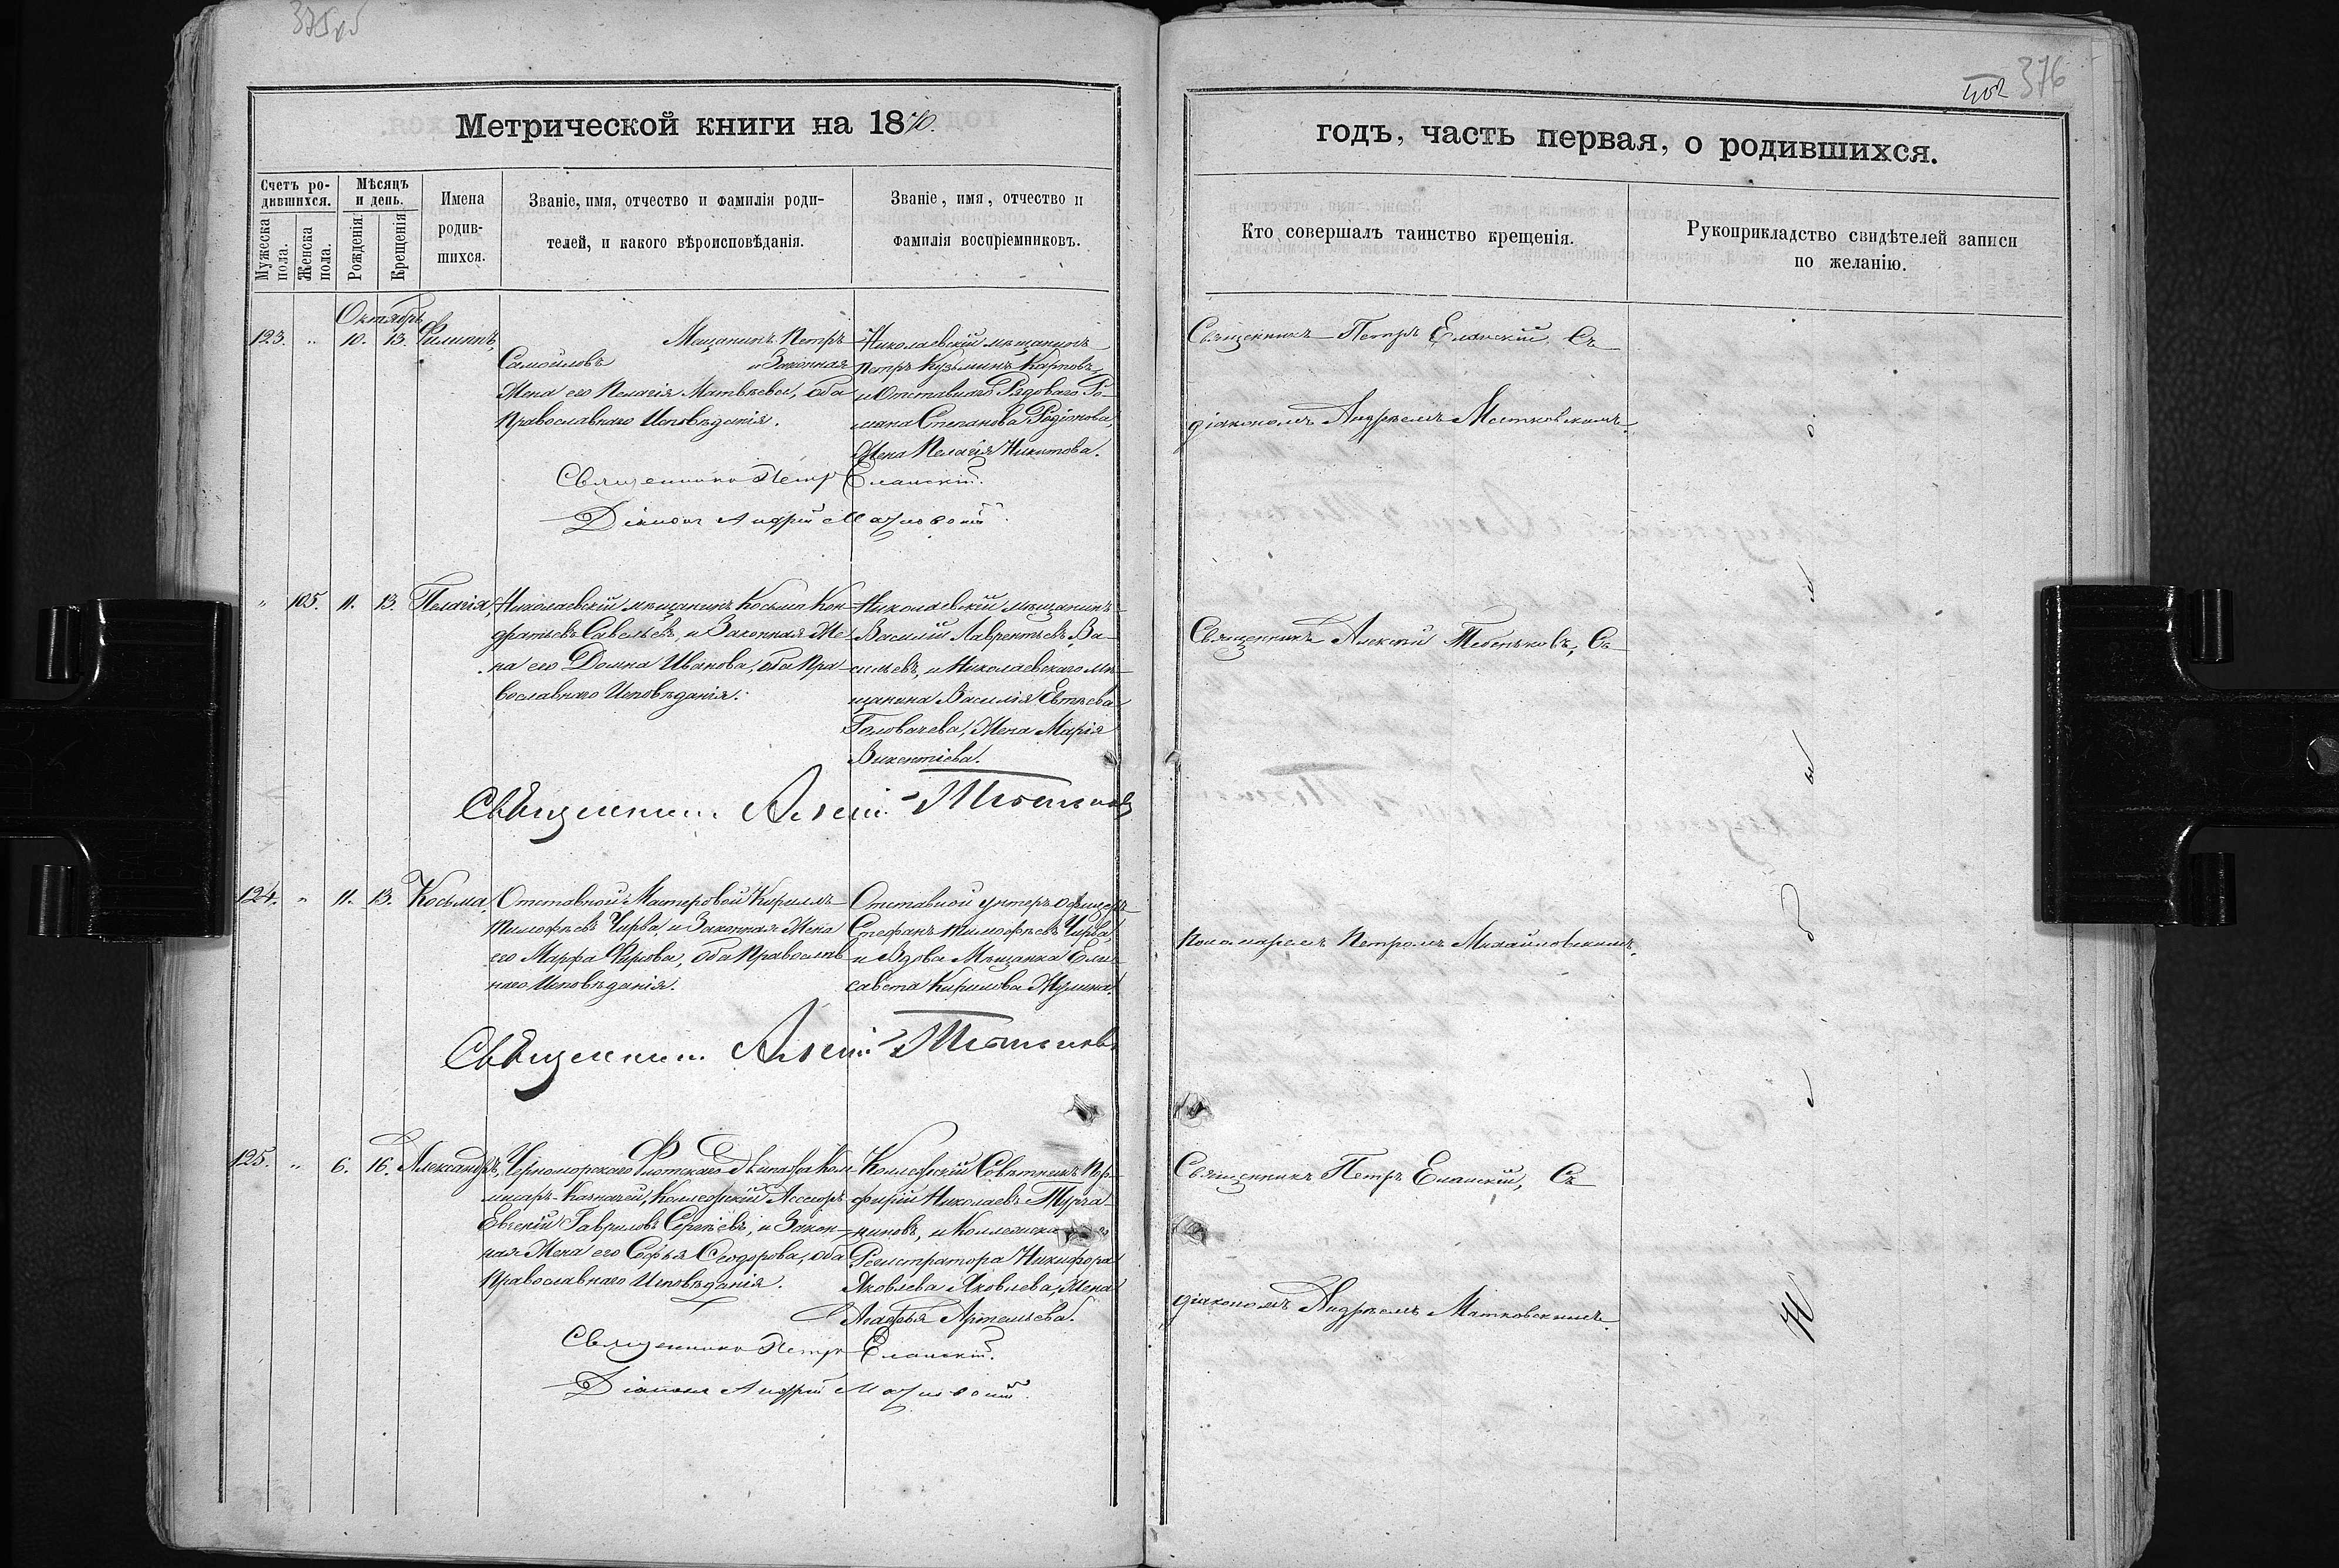 375 об
Метрической книги на 1870.
Счетъ ро-
дившихся.
Мѣсяцъ
и день.
Мужеска
пола.
Женска
пола.
Рожденія.
Крещенія.
Имена
родив-
шихся.
Званіе, имя, отчество и фамилія роди-
телей, и какого вѣроисповѣданія.
Званіе, имя, отчество и
фамилія воспріемниковъ.
Октябрь
123. " 10. 13. Филиппъ,
Мещанинъ Петръ
Самойловъ и Законная
Жена его Пелагія Матвѣева, оба
Православнаго Исповѣданія.
Николаевскій мѣщанинъ
Петръ Кузьминъ Карповъ,
и Отставнаго Рядоваго Ро-
мана Степанова Родіонова,
Жена Пелагія Никитова.
Священникъ Петръ Еланскій.
Діаконъ Андрей Матковскій.
" 105. 11. 13. Пелагія,
Николаевскій мѣщанинъ Косьма Кон-
дратьевъ Савельевъ, и Законная Же-
на его Домна Иванова, оба Пра-
вославнаго Исповѣданія.
Николаевскій мѣщанинъ
Василій Лаврентьевъ Ва-
сильевъ, и Николаевскаго мѣ-
щанина Василія Евтѣева
Головачева, Жена Марія
Викентіева.
Священникъ Алексій Тебеньковъ
124. " 11. 13. Косьма,
Отставной Мастеровой Кириллъ
Тимофѣевъ Чирва и Законная Жена
его Марфа Фирсова, оба Православ-
наго Исповѣданія.
Отставной унтеръ офицеръ
Стефанъ Тимофѣевъ Чирва,
и Вдова Мѣщанка Ели-
савета Кирилова
Священникъ Алексій Тебеньковъ
125. " 6. 16. Александръ,
Черноморскаго Флотскаго Экипажа Ком-
мисаръ-Казначей, Коллежскій Ассесоръ
Евгеній Гавриловъ Сергѣевъ, и Закон-
ная Жена его Софья Ѳеодорова, оба
Православнаго Исповѣданія.
Коллежскій Совѣтникъ Пор-
фирій Николаевъ
и Коллежскаго
Регистратора Никифора
Яковлева Яковлева, Жена
Агафья Артемьева.
Священникъ Петръ Еланскій.
Діаконъ Андрей Матковскій.
376
годъ, часть первая, о родившихся.
Кто совершалъ таинство крещенія.
Рукоприкладство свидѣтелей записи
по желанію.
Священникъ Петръ Еланскій, Съ
діакономъ Андреемъ Матковскимъ.
Священникъ Алексій Тебеньковъ, Съ
Пономаремъ Петромъ Михайловскимъ.
Священникъ Петръ Еланскій, Съ
діакономъ Андреемъ Матковскимъ.